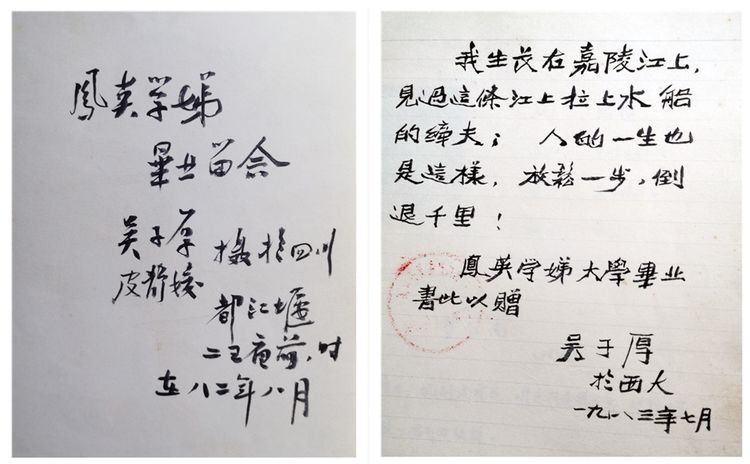 鳳英学娣
畢业留念
吴于厚
摄於四川
都江堰
二王庙前，时
在八二年八月
我生长在嘉陵江上，
見過這條江上拉上水船
的縴夫； 人的一生也
是這樣，放鬆一步，倒
退千里！
鳳英学娣大學畢业
書此以赠
吴于厚
於西大
一九八三年七月